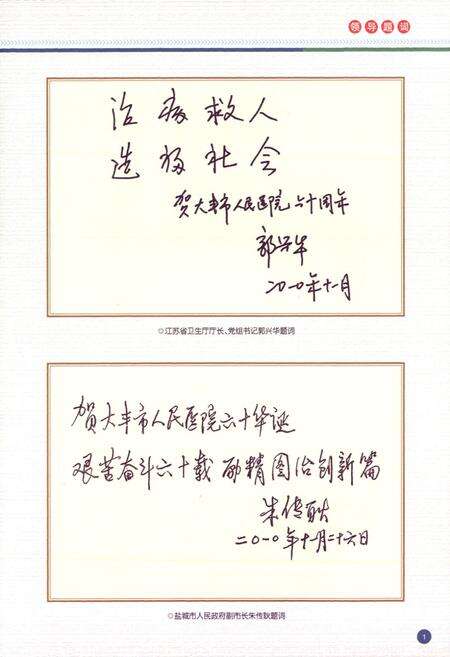 领导题词
治病救人
造福社会
贺大丰市人民医院六十周年
郭兴华
二〇一〇年十一月
◎江苏省卫生厅厅长、党组书记郭兴华题词
贺大丰市人民医院六十华诞
艰苦奋斗六十载 励精图治创新篇
朱传耿
二〇一〇年十一月二十六日
◎盐城市人民政府副市长朱传耿题词
1